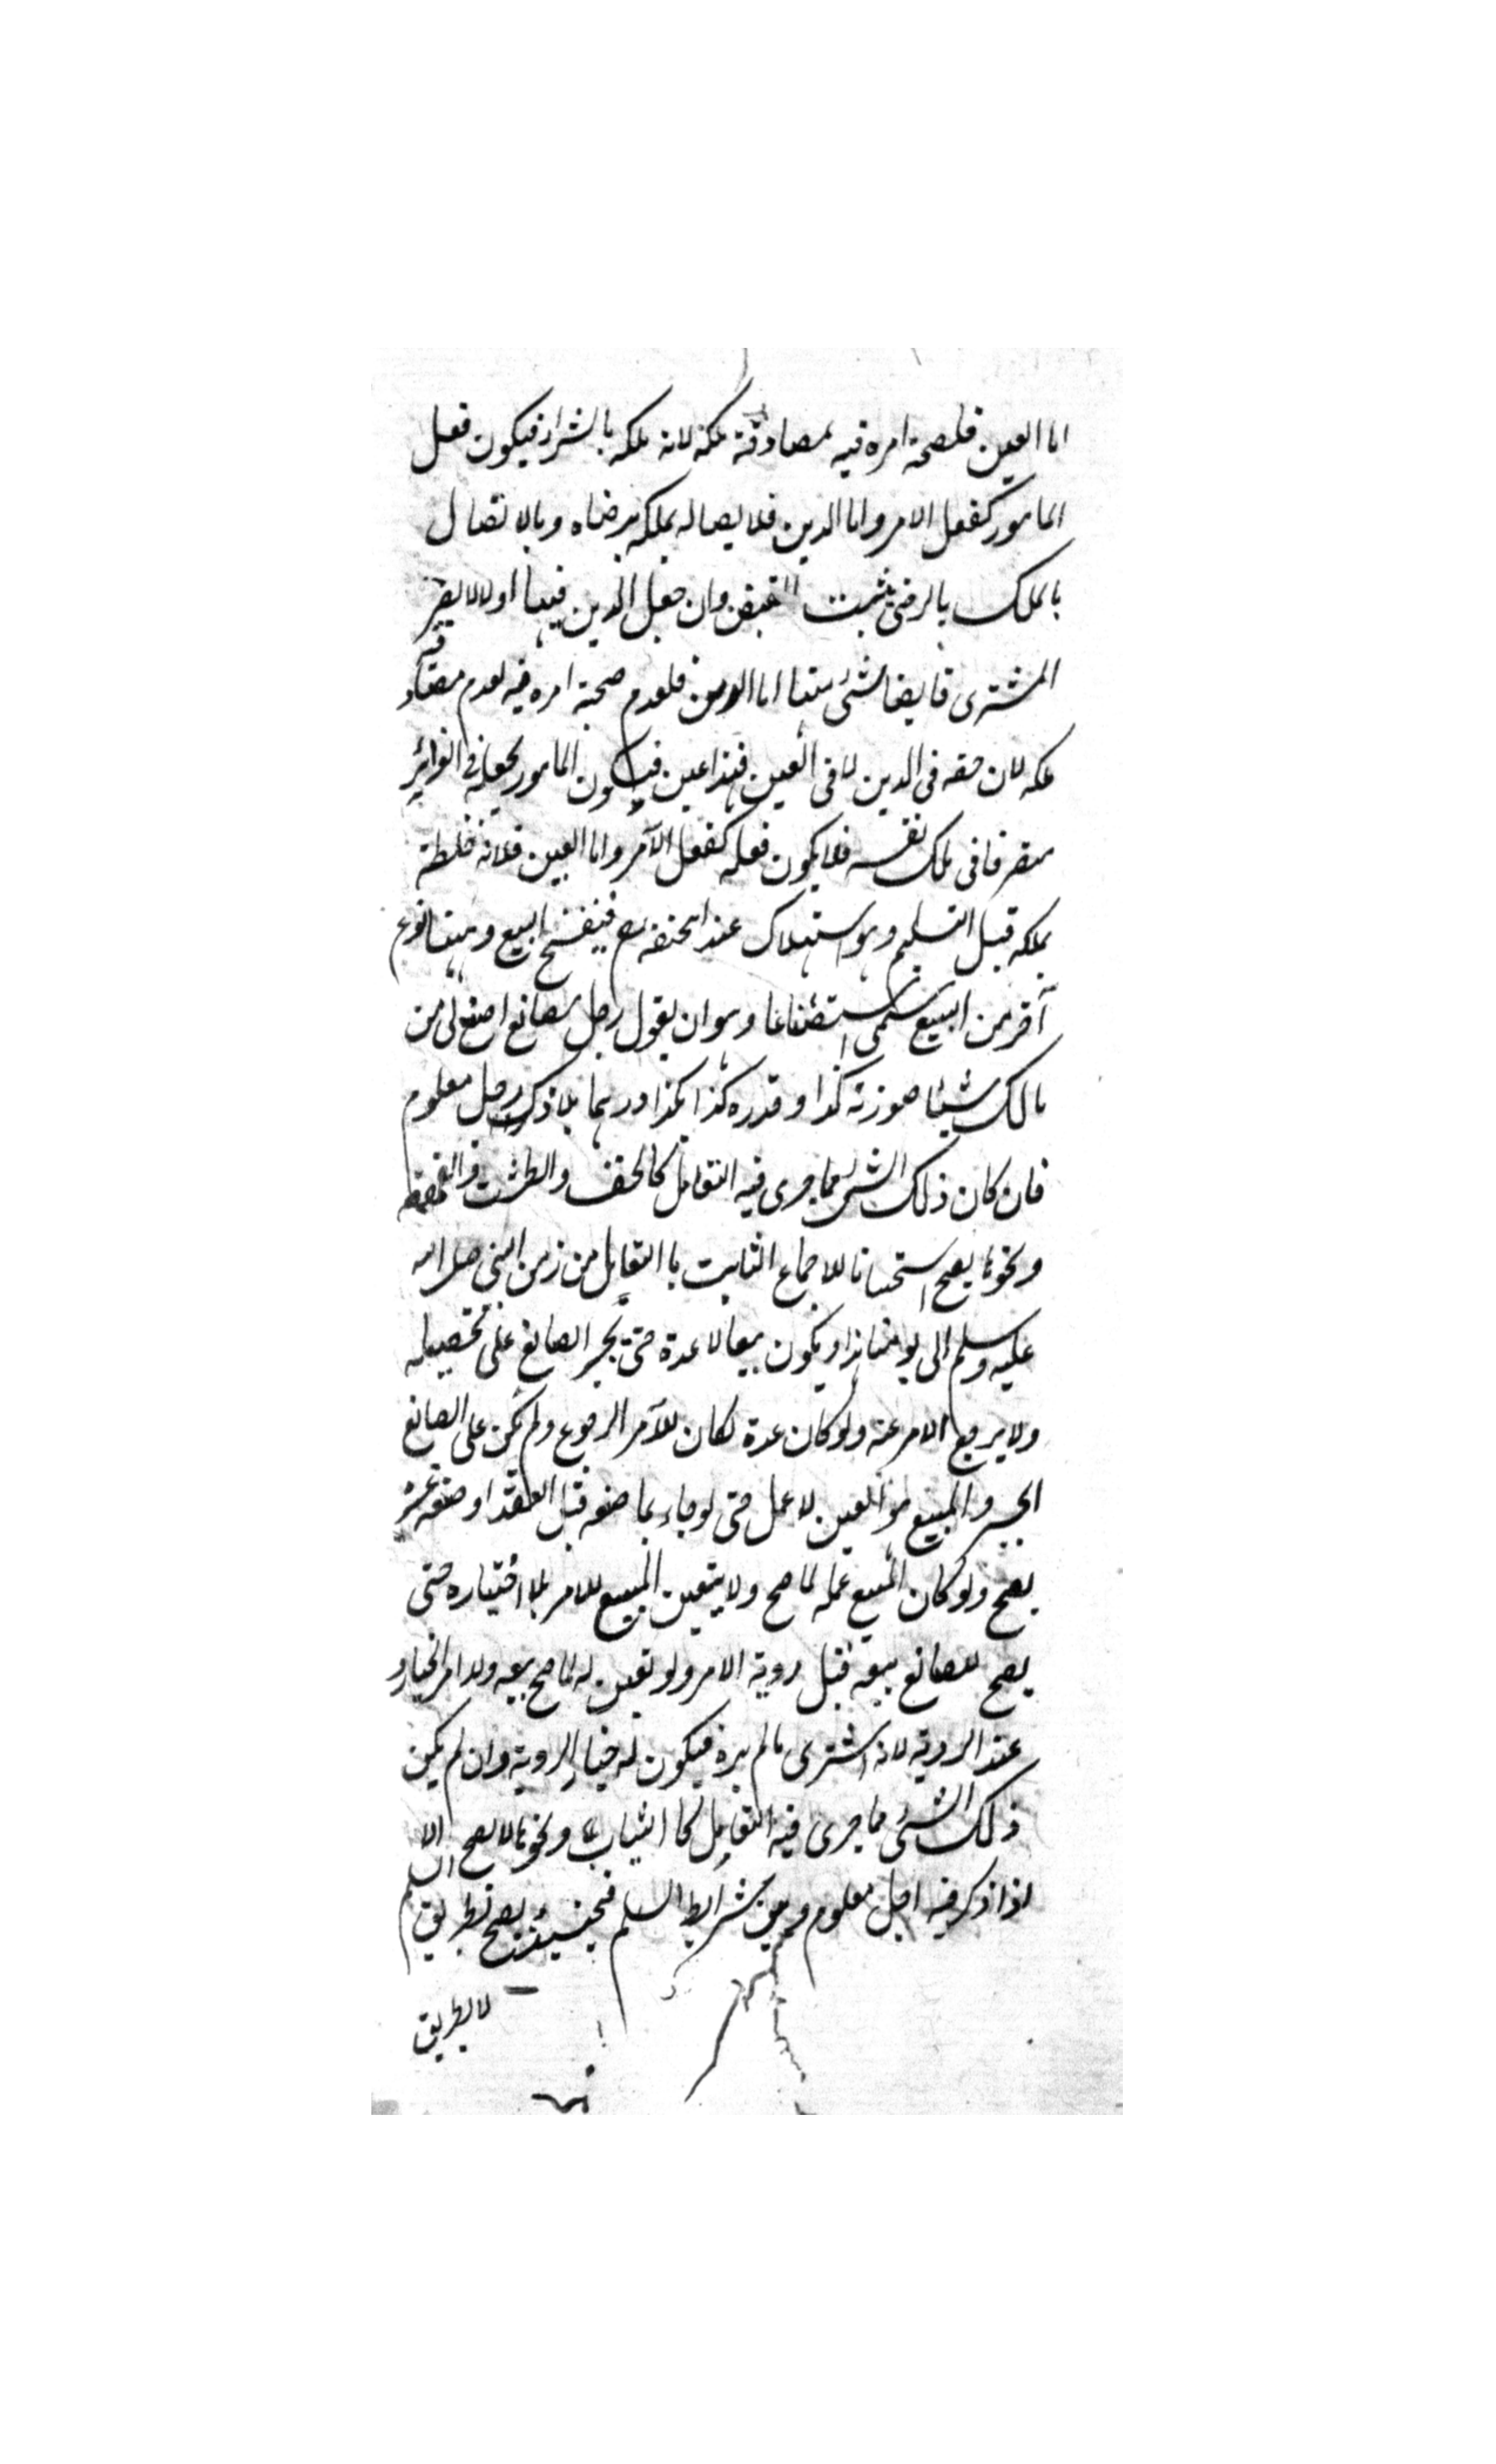 اما العين فلصحة امره فيه بمصادفته ملكه لانه ملكه بالشراء فيكون فعل
المامور كفعل الامر واما الدين فلايصاله بملكه برضاه وبالاتصال
بالملك بالرضى يثبت القبض وان جعل الدين فيها اولا لا يصير
المشترى قابضا لشئ منها اما الدين فلعدم صحة امره فيه لعدم مصادفته
ملكه لان حقه فى الدين لا فى العين فهذا عين فيكون المامور بجعله فى الغرائر
متصرفا فى ملك نفسه فلا يكون فعله كفعل الآمر واما العين فلانه خلطه
بملكه قبل التسليم وهو استهلاك عند ابحنيفه رح فينفسخ البيع وههنا نوع
آخر من البيع يسمى استصناعا وهو ان يقول رجل لصانع اصنع لى من
مالك شيئا صورته كذا وقدره كذا بكذا درهما بلا ذكر اجل معلوم
فان كان ذلك الشئ مما جرى فيه التعامل كالخف والطشت والقمقمه
ونحوها يصح استحسانا للاجماع الثابت باالتعامل من زمن النبى صلى الله
عليه وسلم الى يومنا هذا ويكون بيعا لا عدة حتى يجبر الصانع على تحصيله
ولا يرجع الامر عنه ولو كان عدة لكان للآمر الرجوع ولم يكن على الصانع
الجبر والمبيع هو العين لا عمل حتى لو جاء بما صنعه قبل العقد او صنعه غيره
يصح ولو كان المبيع عمله لما صح ولا يتعين المبيع للامر بلا اختياره حتى
يصح للصانع بيعه قبل روية الامر ولو تعين له لما صح بيعه وللامر الخيار
عند الروية لانه اشترى مالم يره فيكون له خيار الروية وان لم يكن
ذلك الشئ مما جرى فيه التعامل كا الثياب ونحوها لا يصح الا
اذا ذكر فيه اجل معلوم وبين شرايط السلم فحينئذ يصح بطريق السلم
لا بطريق